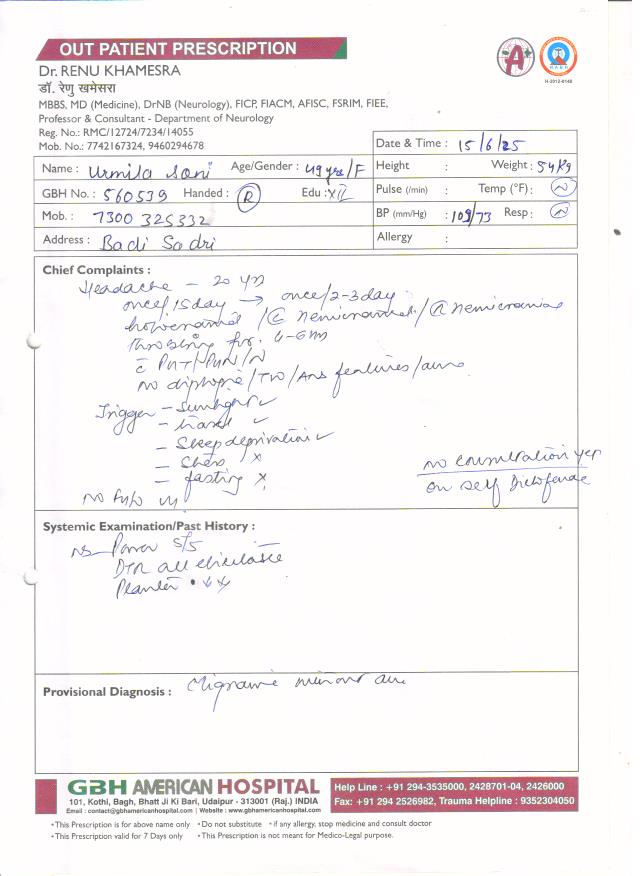 OUT PATIENT PRESCRIPTION
Dr. RENU KHAMESRA
डॉ. रेणु खमेसरा
MBBS, MD (Medicine), DrNB (Neurology), FICP, FIACM, AFISC, FSRIM, FIEE,
Professor & Consultant - Department of Neurology
Reg. No.: RMC/12724/7234/14055
Mob. No.: 7742167324, 9460294678
H-2012-0148
Date & Time : 15/6/25
Name : Urmila Soni Age/Gender : 49 yrs/F
Height : Weight : 54 Kg
GBH No. : 560539 Handed : R Edu : XII
Pulse (/min) : Temp (°F) : N
Mob. : 7300 325332
BP (mm/Hg) : 109/73 Resp : N
Address : Badi Sadri
Allergy :
Chief Complaints :
Headache - 20 yrs
once/15day → once/2-3day
/ hemicranial / hemicranial
Throbbing for 4-6 hrs
no diplopia / features / aura
Trigger - Sunlight ✓
- travel ✓
- Sleep deprivation ✓
- Stress x
- fasting x
no consultation yet
on self Diclofenac
Systemic Examination/Past History :
NS - Power 5/5
DTR all elicitable
Planter ↓↓
Provisional Diagnosis : Migraine without aura
GBH AMERICAN HOSPITAL
101, Kothi, Bagh, Bhatt Ji Ki Bari, Udaipur - 313001 (Raj.) INDIA
Email : contact@gbhamericanhospital.com | Website : www.gbhamericanhospital.com
Help Line : +91 294-3535000, 2428701-04, 2426000
Fax: +91 294 2526982, Trauma Helpline : 9352304050
•This Prescription is for above name only •Do not substitute •if any allergy, stop medicine and consult doctor
•This Prescription valid for 7 Days only •This Prescription is not meant for Medico-Legal purpose.